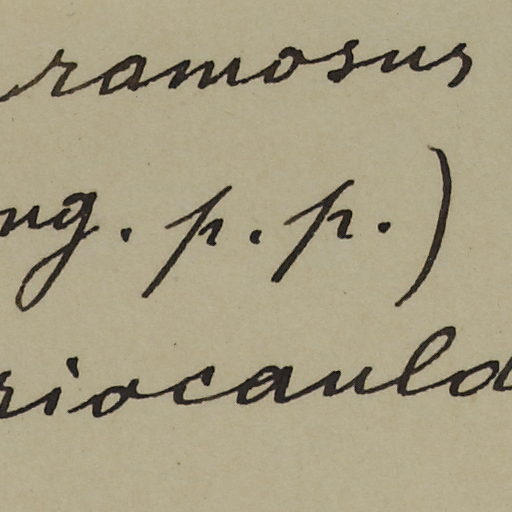 ramosus
ng. p. p.)
riocaulo